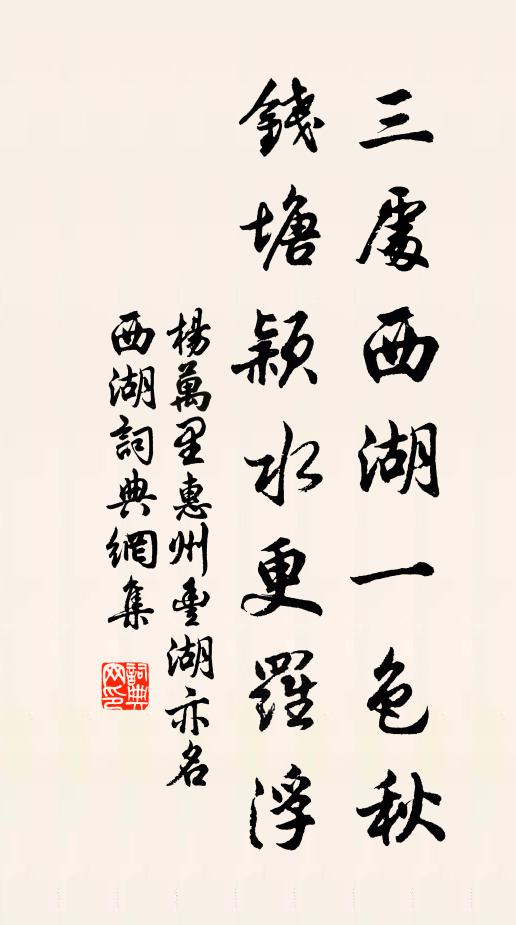 三處西湖一色秋
錢塘潁水更羅浮
楊萬里惠州豐湖亦名
西湖詞典網集
詞典
网印